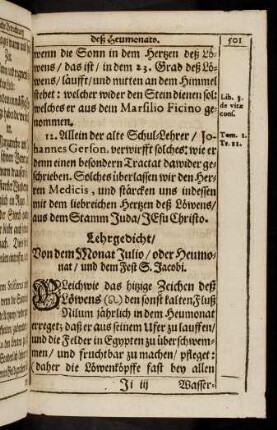 deß Heumonats.
501
wenn die Sonn in dem Hertzen deß Lö-
wens / das ist / in dem 23. Grad deß Lö-
wens / läufft / und mitten an dem Himmel
stehet: welcher wider den Stein dienen sol:
welches er aus dem Marsilio Ficino ge-
nommen.
Lib. 3.
de vitæ
conf.
12. Allein der alte Schul-Lehrer / Jo-
hannes Gerson. verwirfft solches: wie er
denn einen besondern Tractat dawider ge-
schrieben. Solches überlassen wir den Her-
ren Medicis, und stärcken uns indessen
mit dem liebreichen Hertzen deß Löwens /
aus dem Stamm Juda / JEsu Christo.
Tom. 1.
Tr. 11.
Lehrgedicht /
Von dem Monat Julio / oder Heumo-
nat / und dem Fest S. Jacobi.
GLeichwie das hizige Zeichen deß
Löwens (♌) den sonst kalten Fluß
Nilum jährlich in dem Heumonat
erreget / daß er aus seinem Ufer zu lauffen /
und die Felder in Egypten zu überschwem-
men / und fruchtbar zu machen / pfleget:
(daher die Löwenköpffe fast bey allen
Ii iij
Wasser-